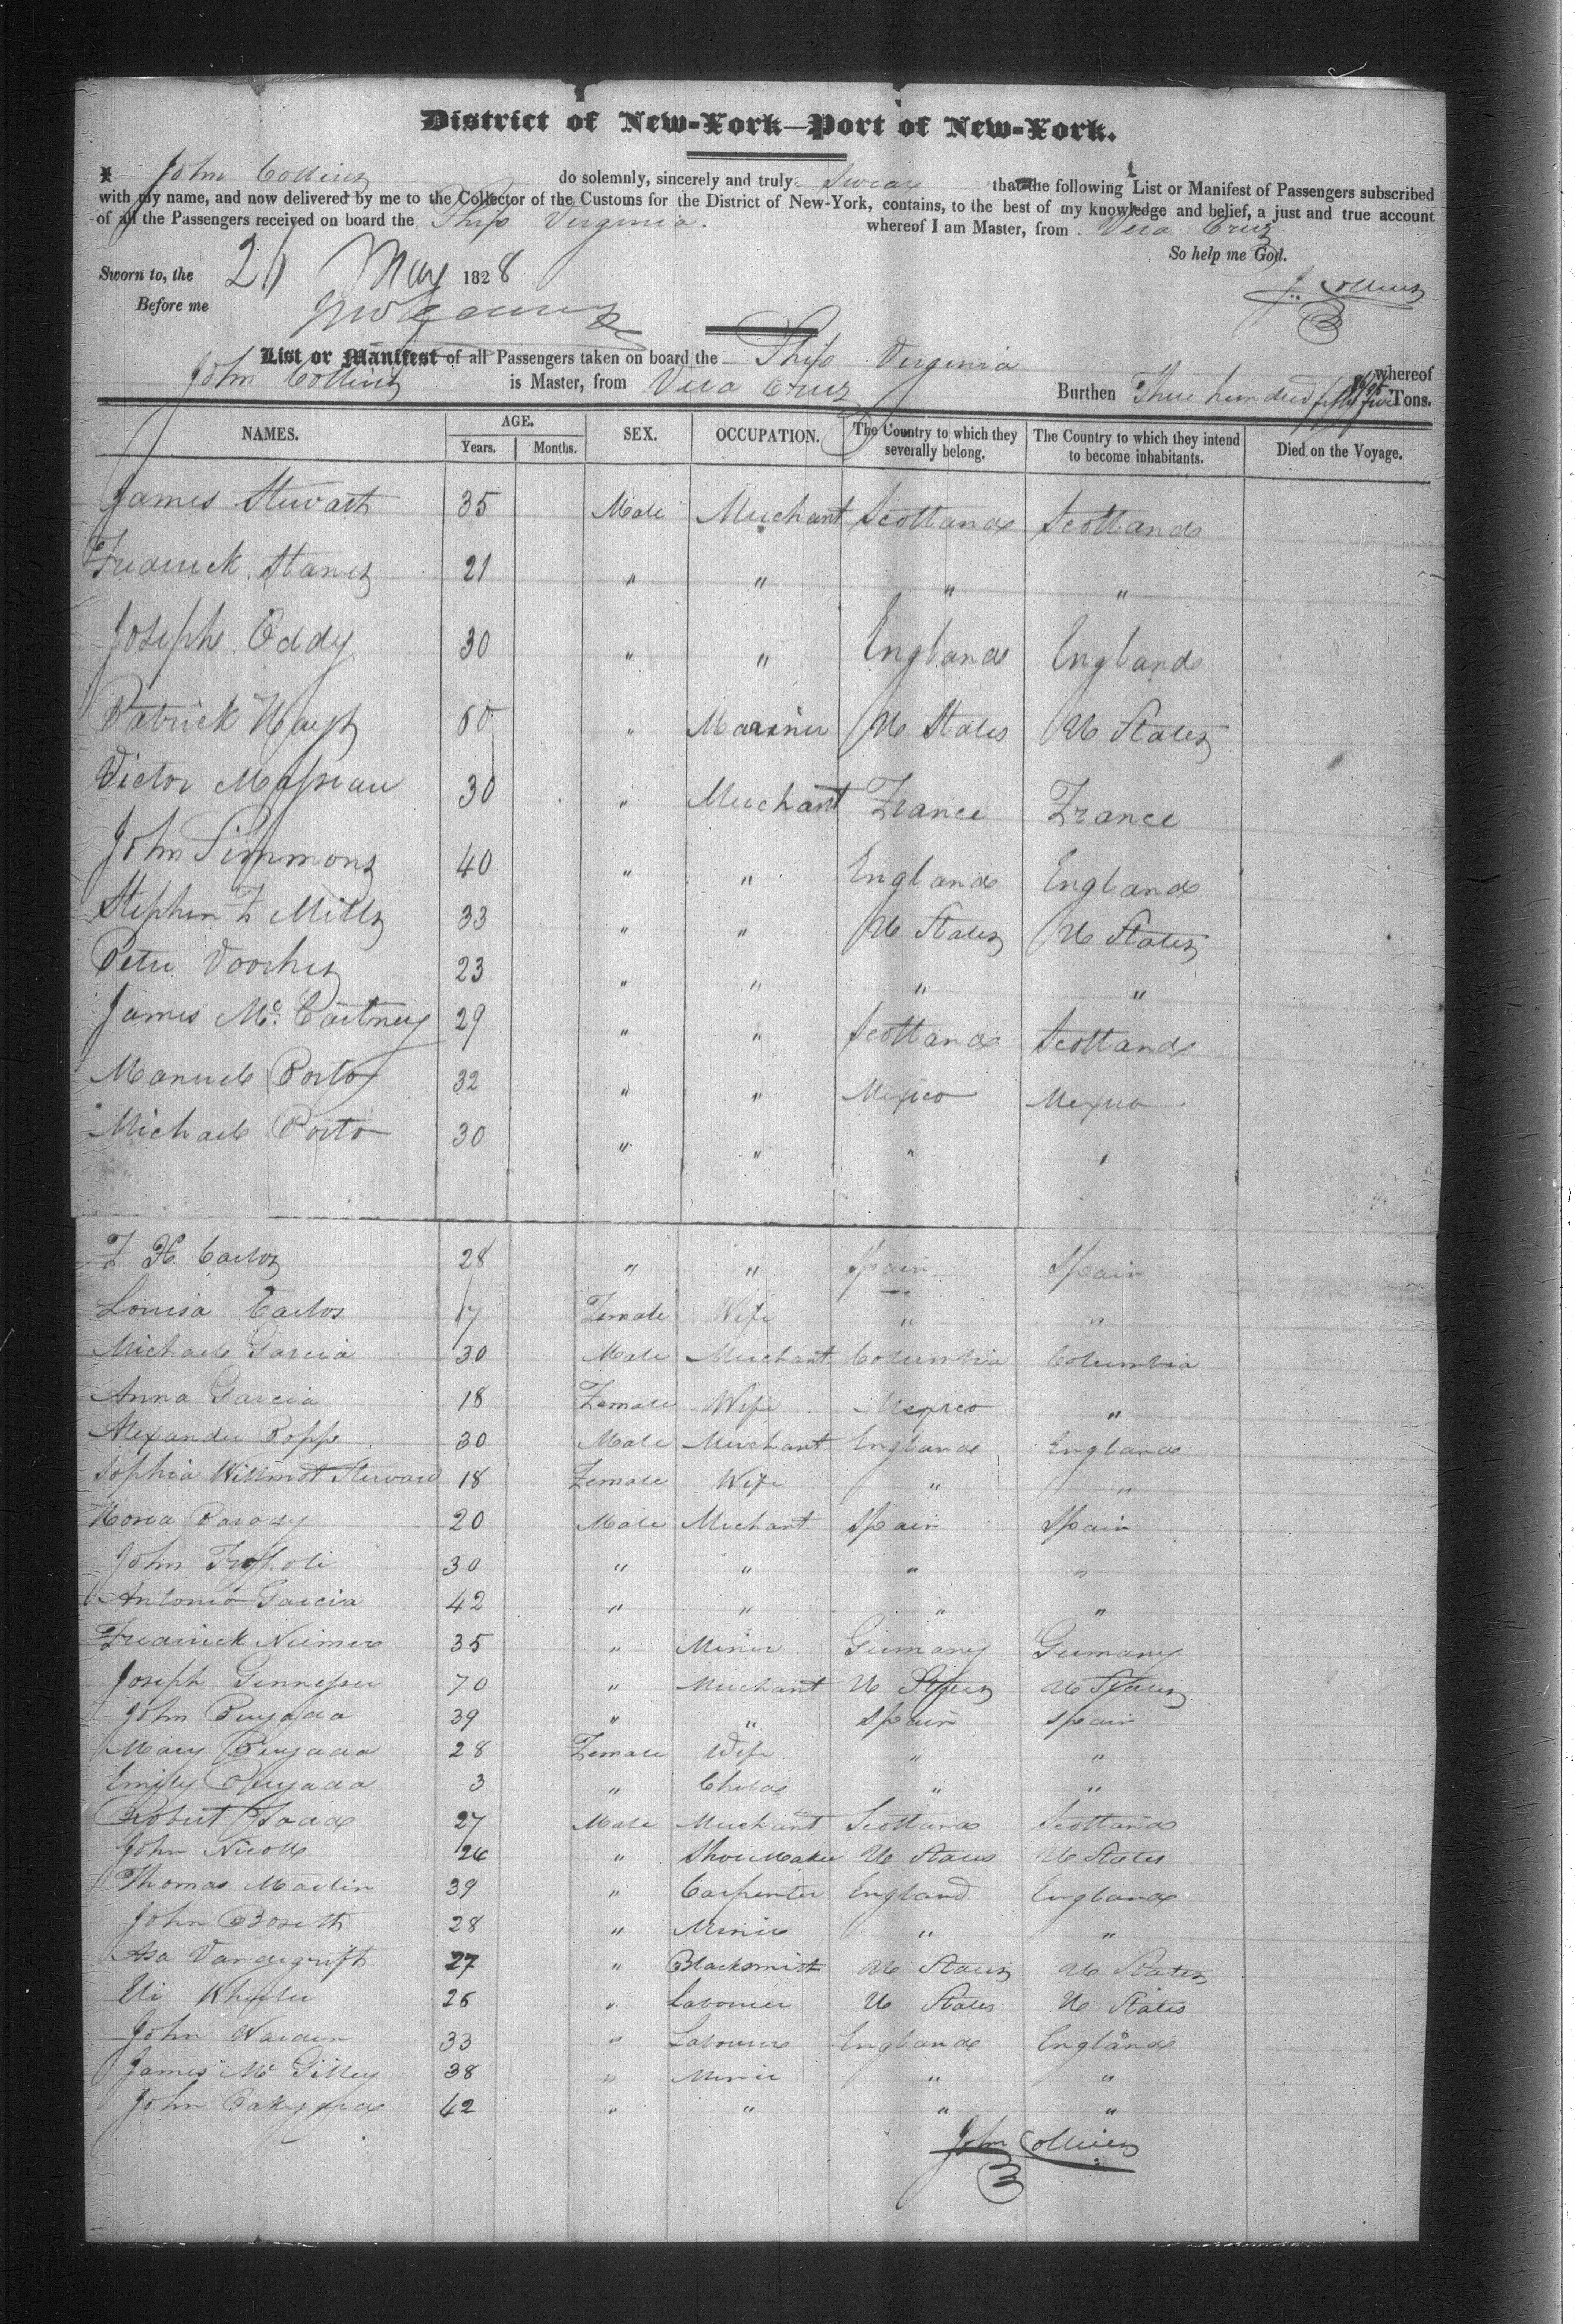 District of New-York—Port of New-York.
I John Collins do solemnly, sincerely and truly Swear that the following List or Manifest of Passengers subscribed
with my name, and now delivered by me to the Collector of the Customs for the District of New-York, contains, to the best of my knowledge and belief, a just and true account
of all the Passengers received on board the Ship Virginia. whereof I am Master, from Vera Cruz
So help me God.
Sworn to, the 21 May 1828
J. Collins
Before me
List or Manifest of all Passengers taken on board the Ship Virginia whereof
John Collins is Master, from Vera Cruz Burthen Three hundred fifty five Tons.
NAMES. AGE. Years. Months. SEX. OCCUPATION. The Country to which they severally belong. The Country to which they intend to become inhabitants. Died on the Voyage.
James Stewart 35 Male Merchant Scotland Scotland
Frederick Stanes 21 " " " "
Joseph Eddy 30 " " England England
Patrick Hays 60 " Mariner U States U States
Victor 30 " Merchant France France
John Simmons 40 " " England England
Stephen F Mills 33 " " U States U States
Peter Voorhes 23 " " " "
James Mc. Cartney 29 " " Scotland Scotland
Manuel Porto 32 " " Mexico Mexico
Michael Porto 30 " " " "
F H Carlos 28 " " Spain Spain
Louisa Carlos 17 Female Wife " "
Michael Garcia 30 Male Merchant Columbia Columbia
Anna Garcia 18 Female Wife Mexico "
Alexander Popps 30 Male Merchant England England
Sophia Willmot Steward 18 Female Wife " "
Parody 20 Male Merchant Spain Spain
John 30 " " " "
Antonio Garcia 42 " " " "
Frederick 35 " Miner Germany Germany
Joseph 70 " Merchant U States U States
John Puyada 39 " " Spain Spain
Mary Puyada 28 Female Wife " "
Emily Puyada 3 " Child " "
Robert 27 Male Merchant Scotland Scotland
John Nicoll 26 " Shoe Maker U States U States
Thomas Martin 39 " Carpenter England England
John 28 " Miner " "
Asa Vandegrift 27 " Blacksmith U States U States
Eli Wheeler 26 " Labourer U States U States
John Warden 33 " Labourer England England
James Mc Gilley 38 " Miner " "
John 42 " " " "
John Collins